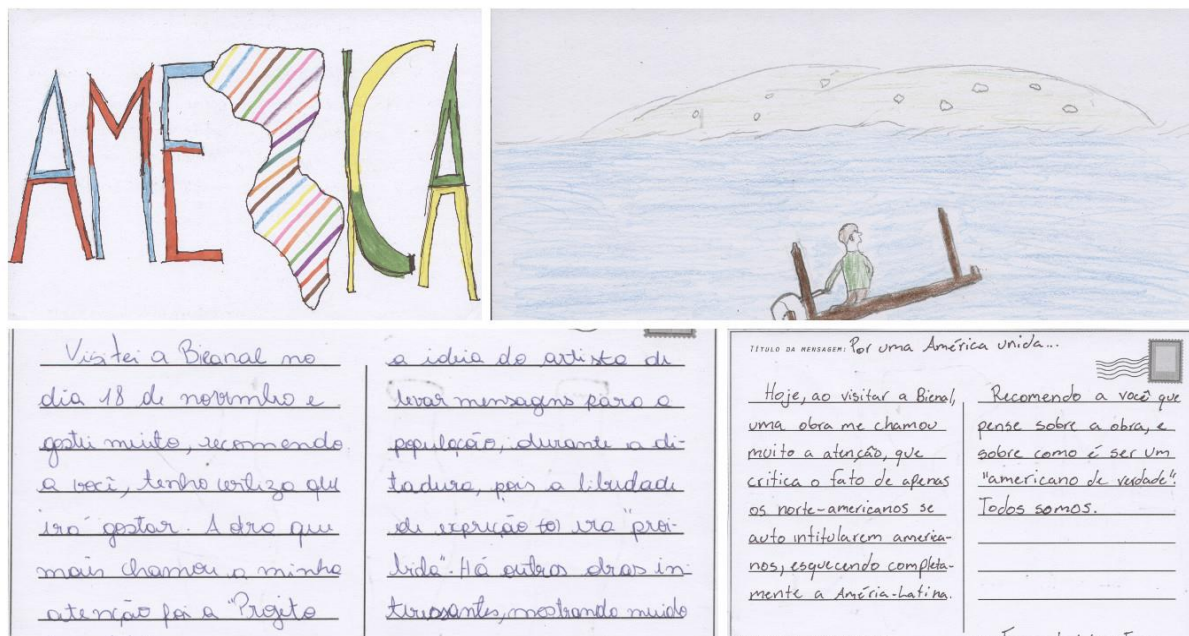 AME ICA
Visitei a Bienal no
dia 18 de novembro e
gostei muito, recomendo
a você, tenho certeza que
irá gostar. A obra que
mais chamou a minha
atenção foi a "Projeto
a ideia do artista de
levar mensagens para a
população, durante a di-
tadura, pois a liberdade
de era "proi-
bida". Há outras obras in-
teressantes, mostrando
TÍTULO DA MENSAGEM: Por uma América unida...
Hoje, ao visitar a Bienal,
uma obra me chamou
muito a atenção, que
critica o fato de apenas
os norte-americanos se
auto intitularem america-
nos, esquecendo completa-
mente a Améria-Latina.
Recomendo a você que
pense sobre a obra, e
sobre como é ser um
"americano de verdade".
Todos somos.